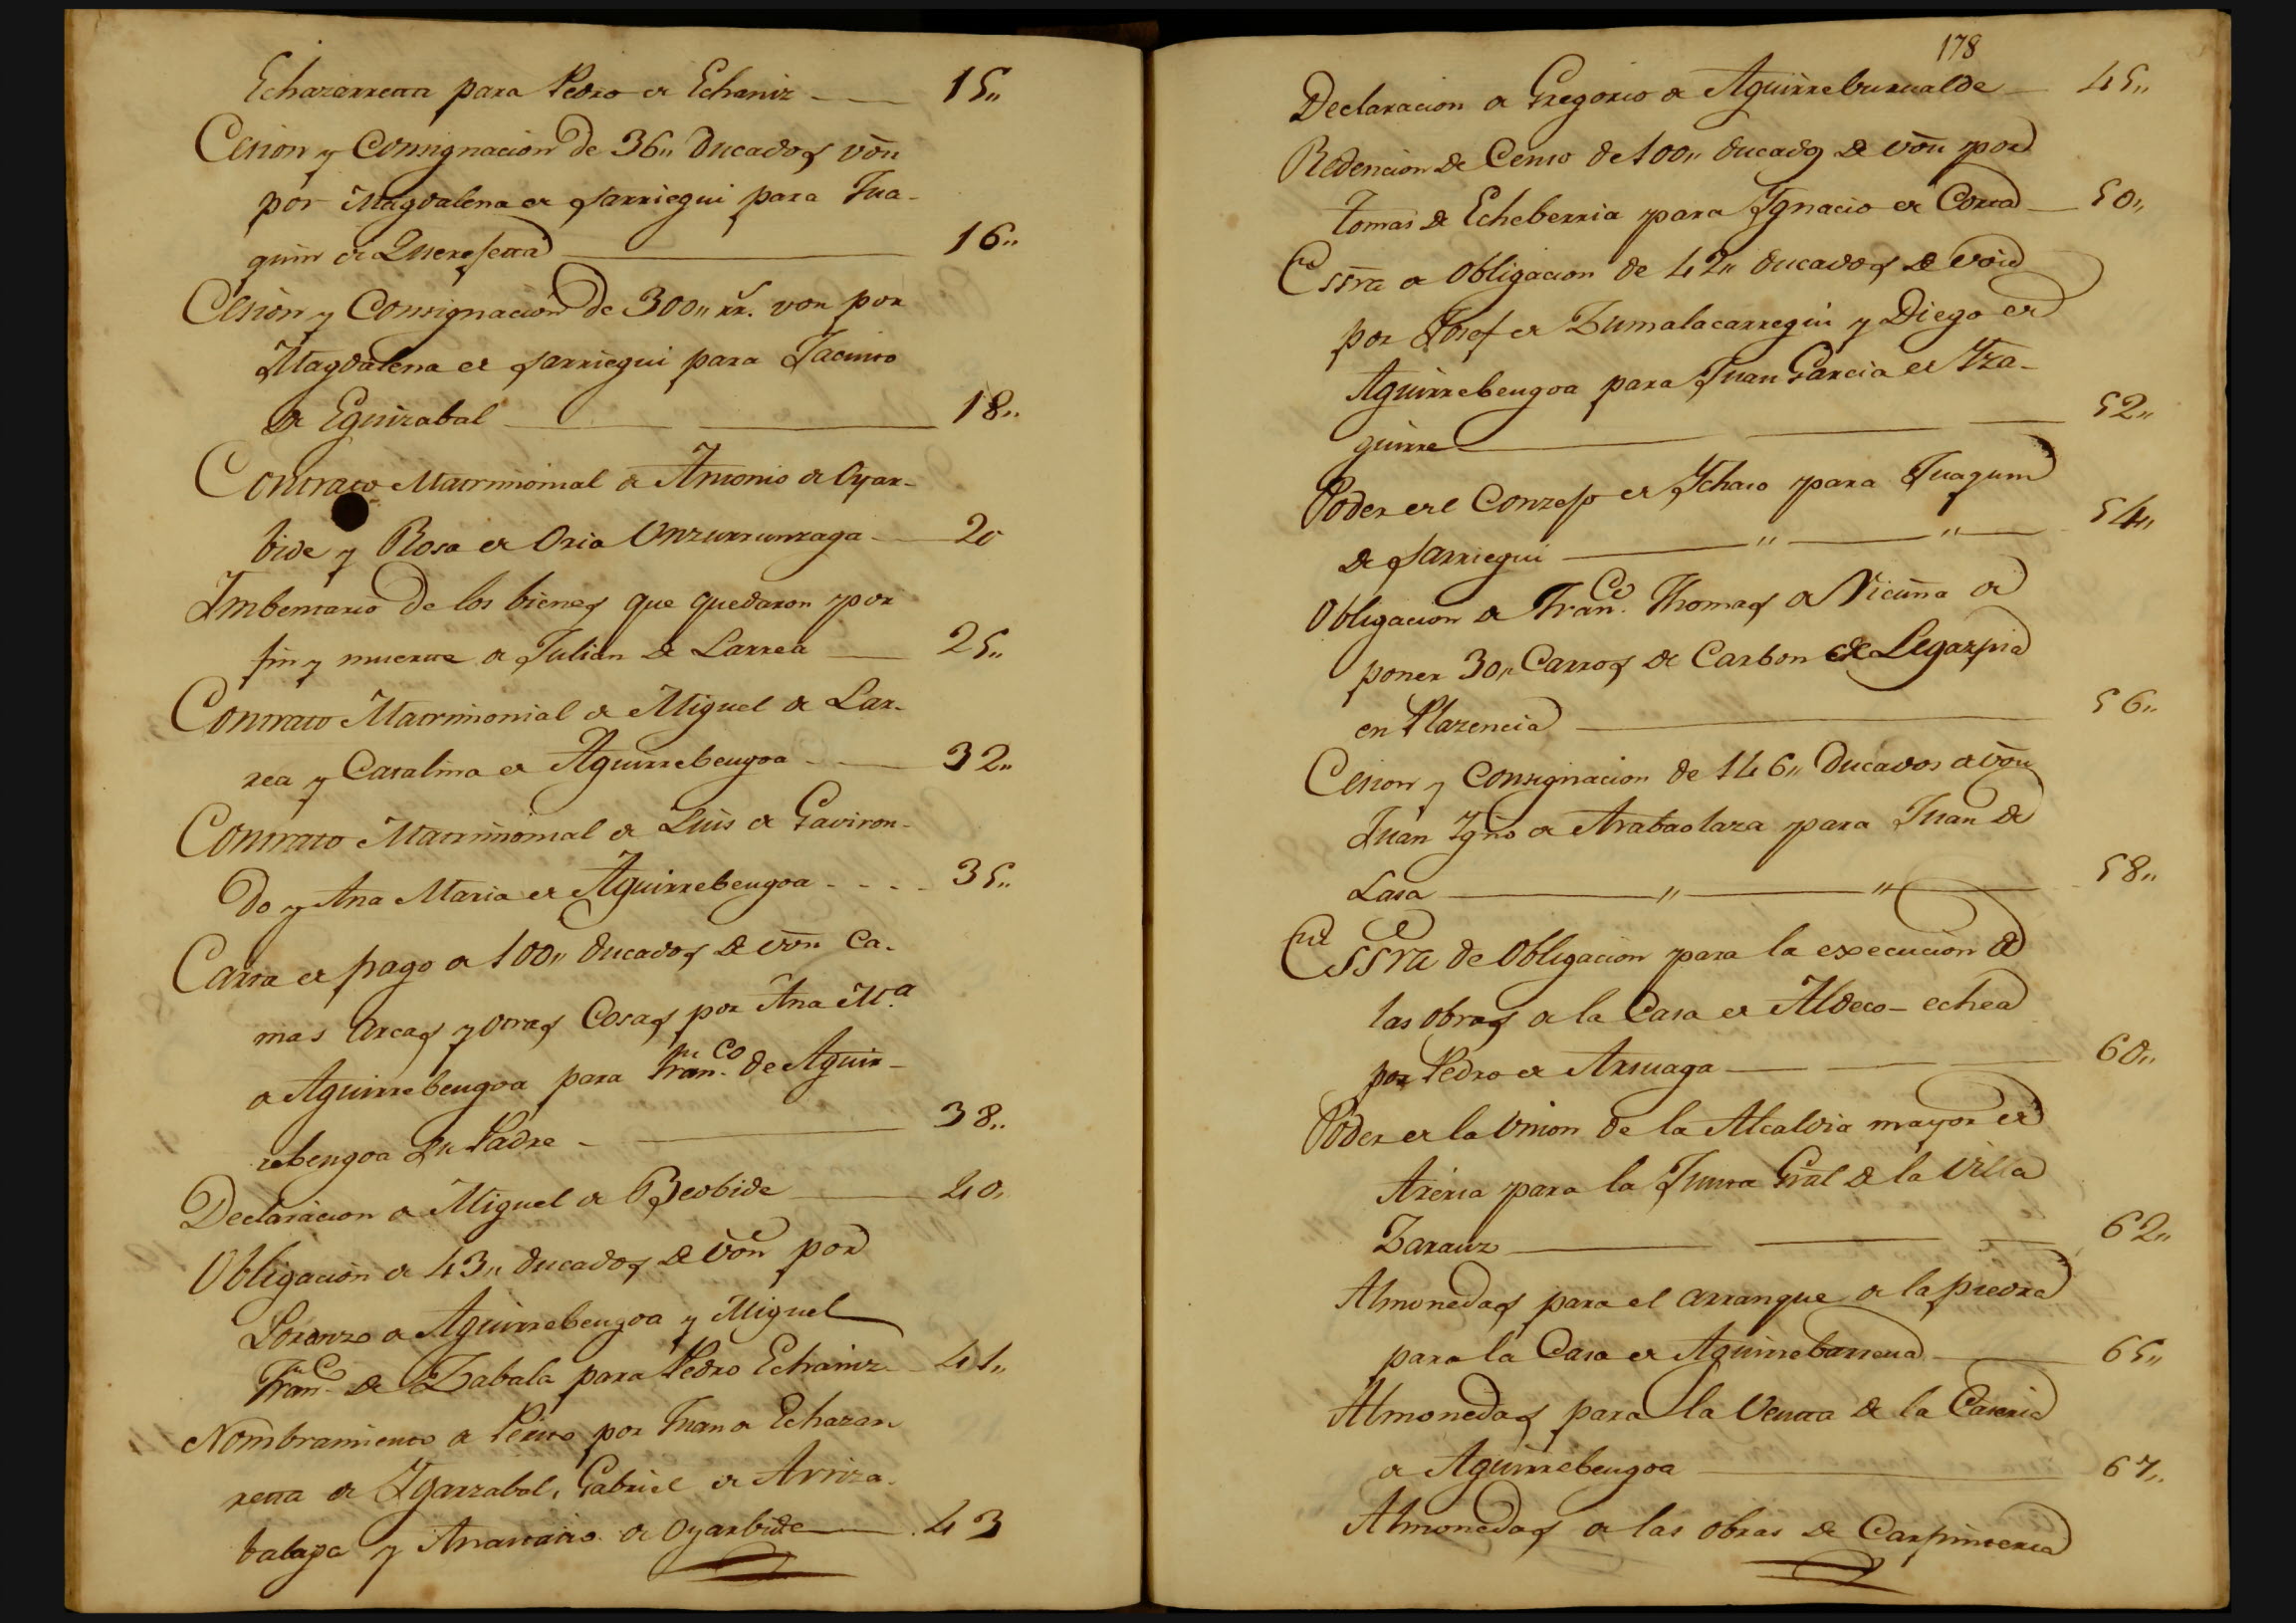 Echazarreta para Pedro de Echaniz 15,,
Cesion y Consignacion de 36,, ducados von
por Magdalena de Sarriegui para Jua-
quin de Querejeta 16,,
Cesion y Consignacion de 300,, rr.s von por
Magdalena de Sarriegui para Jacinto
de Eguizabal 18,,
Contrato Matrimonial de Antonio de Oyar-
bide y Rosa de Oria Unzurrunzaga 20
Imbentario de los bienes que quedaron por
fin y muerte de Julian de Larrea 25,,
Contrato Matrimonial de Miguel de Lar-
rea y Catalina de Aguirrebengoa 32,,
Contrato Matrimonial de Luis de Gaviron-
do y Ana Maria de Aguirrebengoa 35,,
Carta de pago de 100,, ducados de von Ca-
mas arcas y otras Cosas por Ana M.a
de Aguirrebengoa para Fran.co de Aguir-
rebengoa su Padre 38,,
Declaracion de Miguel de Beobide 40,
Obligacion de 43,, ducados de von por
Lorenzo de Aguirrebengoa y Miguel
Fran.co de Zabala para Pedro Echainz 41,,
Nombramiento de Perito por Juan de Echazar
reta de Igarzabal, Gabriel de Arriza-
balaga y Anastasio de Oyarbide 43
178
Declaracion de Gregorio de Aguirreburualde 45,,
Redencion de Censo de 100,, ducados de von por
Tomas de Echeberria para Ygnacio de Corta 50,,
Essra de obligacion de 42,, ducados de von
por Josef de Zumalacarregui y Diego de
Aguirrebengoa para Juan Garcia de Yza-
guirre 52,,
Poder del Conzejo de Ychaso para Juaquin
de Sarriegui 54,,
Obligacion de Fran.co Thomas de Vicuña de
poner 30,, Carros de Carbon de Legazpia
en Plazencia 56,,
Cesion y Consignacion de 146,, Ducados de von
Juan Ygno de Arabaolaza para Juan de
Lasa 58,,
Essra de Obligacion para la execucion de
las obras de la Casa de Aldeco-echea
por Pedro de Arsuaga 60,,
Poder de la Union de la Alcaldia mayor de
Areria para la Junta Gral de la Villa
Zarauz 62,,
Almonedas para el arranque de la piedra
para la Casa de Aguirrebarrena 65,,
Almonedas para la Venta de la Caseria
de Aguirrebengoa 67,,
Almonedas de las obras de Carpinteria